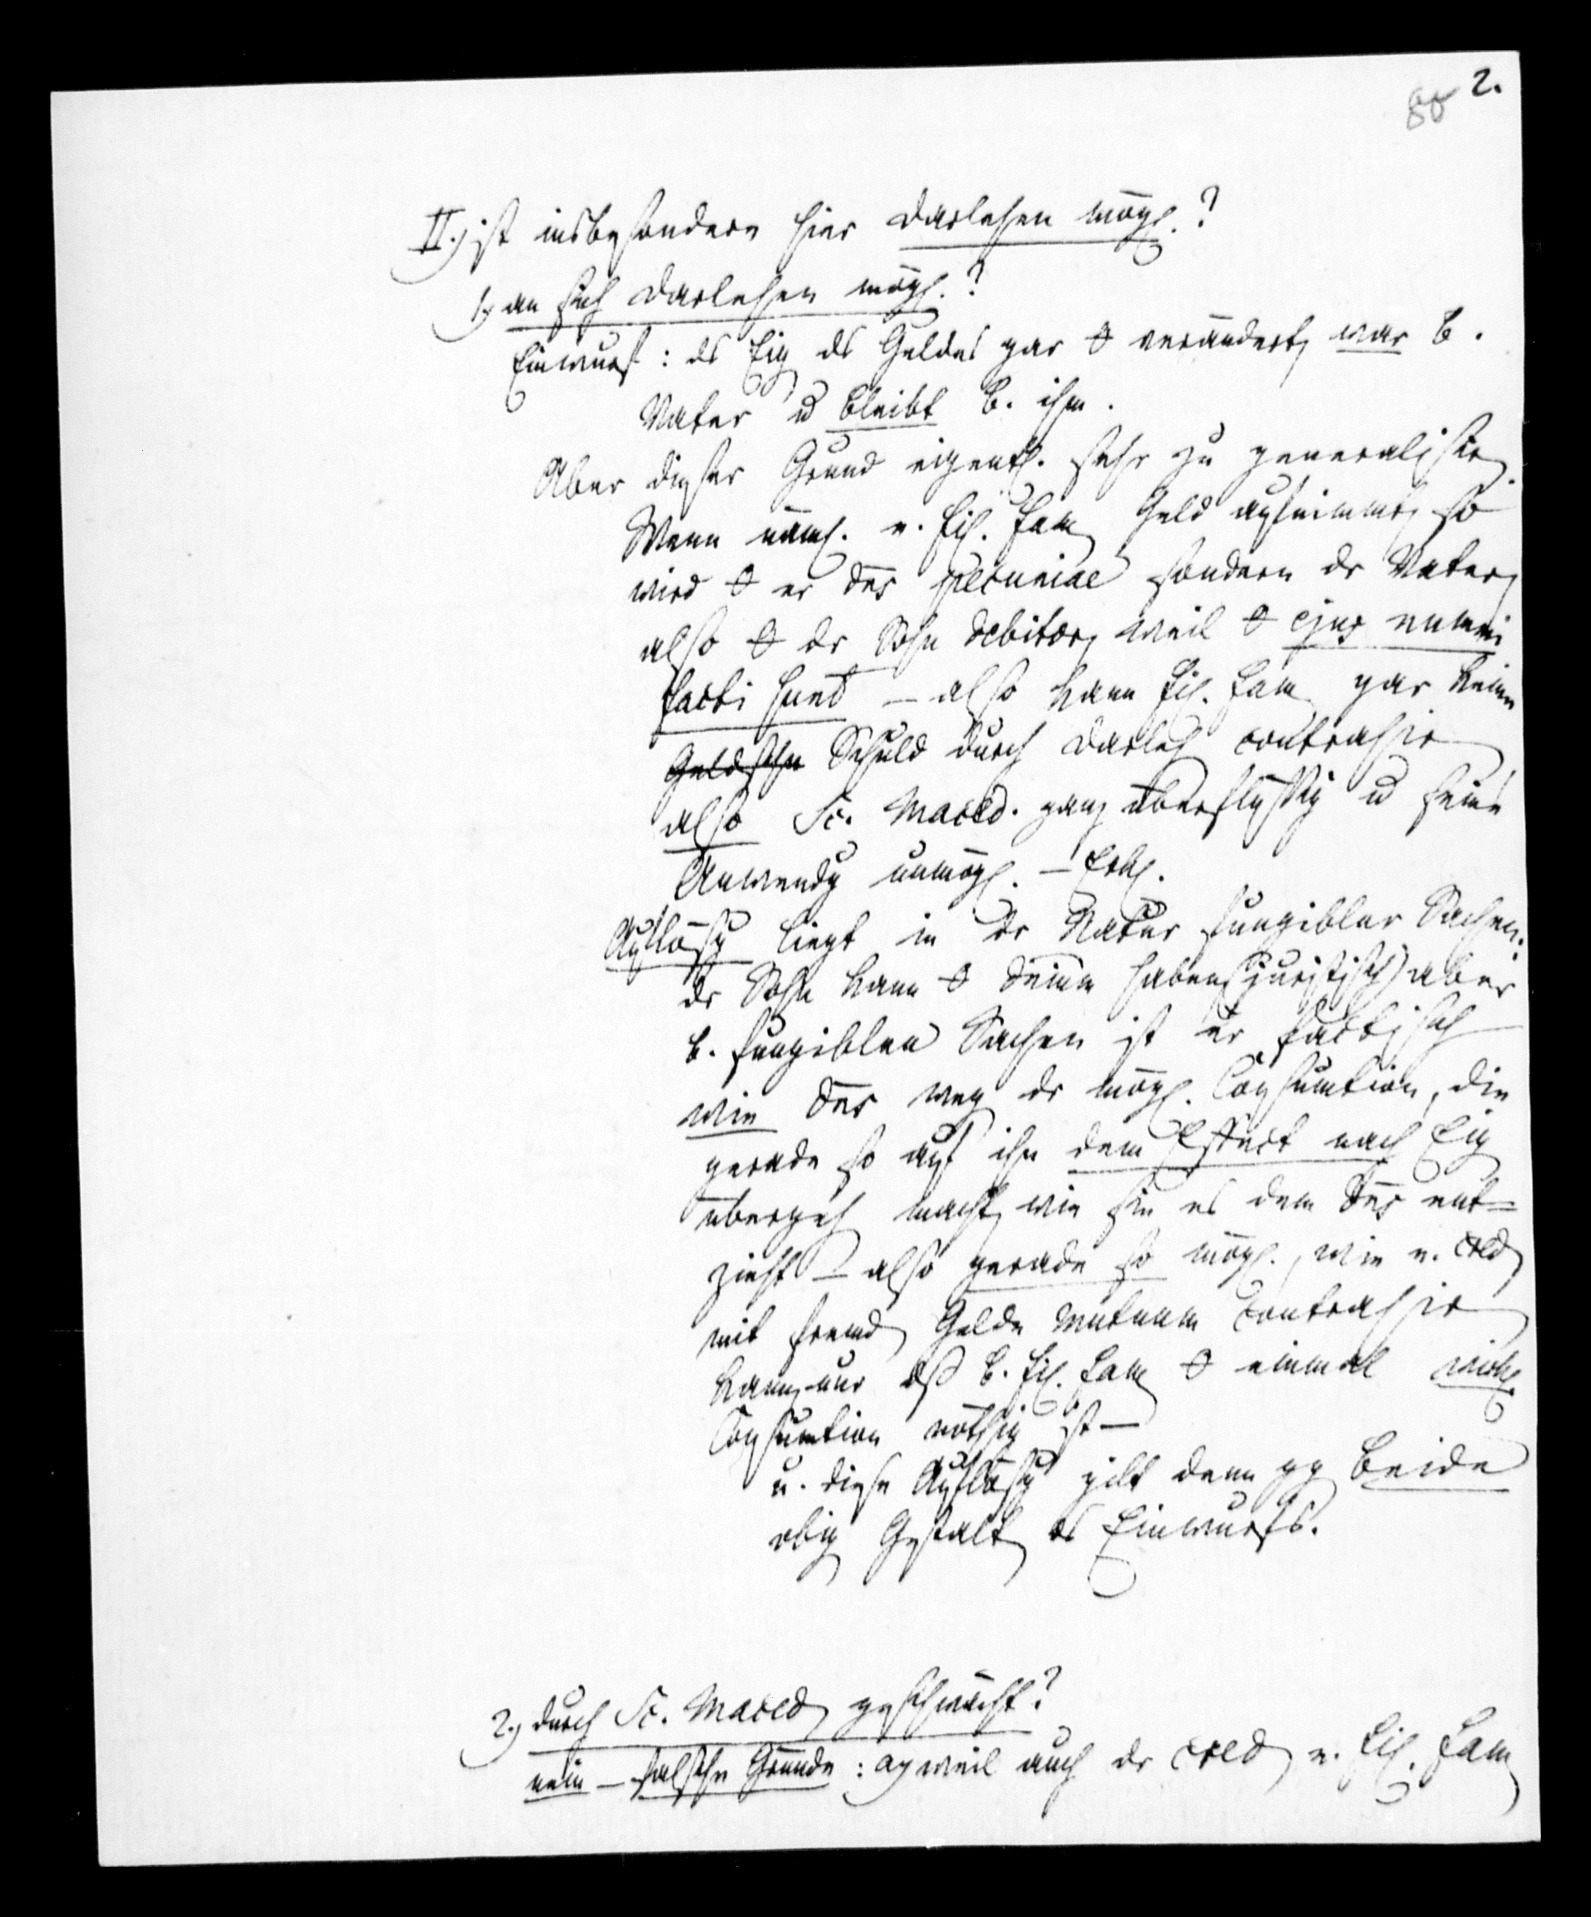 80 2.
II.) ist insbesondere hier Darlehen mögl.?
1.) an sich Darlehen mögl.?
Einwurf: ds Eig ds Geldes gar θ verändert, war b.
Vater u bleibt b. ihm.
Aber dieser Grund eigentl. sehr zu generalisir
Wenn näml. e. fil. fam Geld aufnimmt, so
wird θ er dns pecuniae sondern dr Vater,
also θ dr Sohn debitor, weil θ ejus nummi
facti sunt – also kann fil. fam gar keine
Geldschu Schuld durch Darleh contrahir
also Sc. Maced. ganz überflüssig u seine
Anwendg unmögl. –
Auflösg liegt in dr Natur fungibler Sachen.
dr Sohn kann θ haben (juristisch) aber
b. fungiblen Sachen ist er factisch
wie dns weg dr mögl. Consumtion, die
gerade so auf ihn dem Effect nach Eig
übergeh macht, wie sie es dem dns ent=
zieht – also gerade so mögl., wie e. cred
mit fremd Gelde mutuum contrahir
kann, nur dß b. fil. fam θ einmal wirkl.
Consumtion nöthig ist –
u. diese Auflösg gilt denn gg beide
obig Gestalt ds Einwurfs.
2.) durch Sc. Maced geschwächt?
nein – falsche Gründe: a) weil auch dr cred e. fil. fam